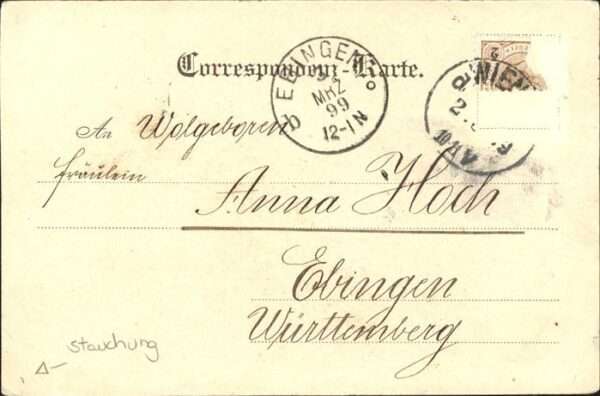 Correspondenz-Karte.
EBINGEN
MRZ
99
12-1N
b
WIEN
2
2
An Wolgeboren
fräulein
Anna Hoch
Ebingen
Württemberg
stauchung